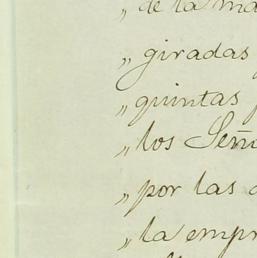 „ de la ma
„ giradas
„ quintas p
„ los Seño
„ por las
„ la empr